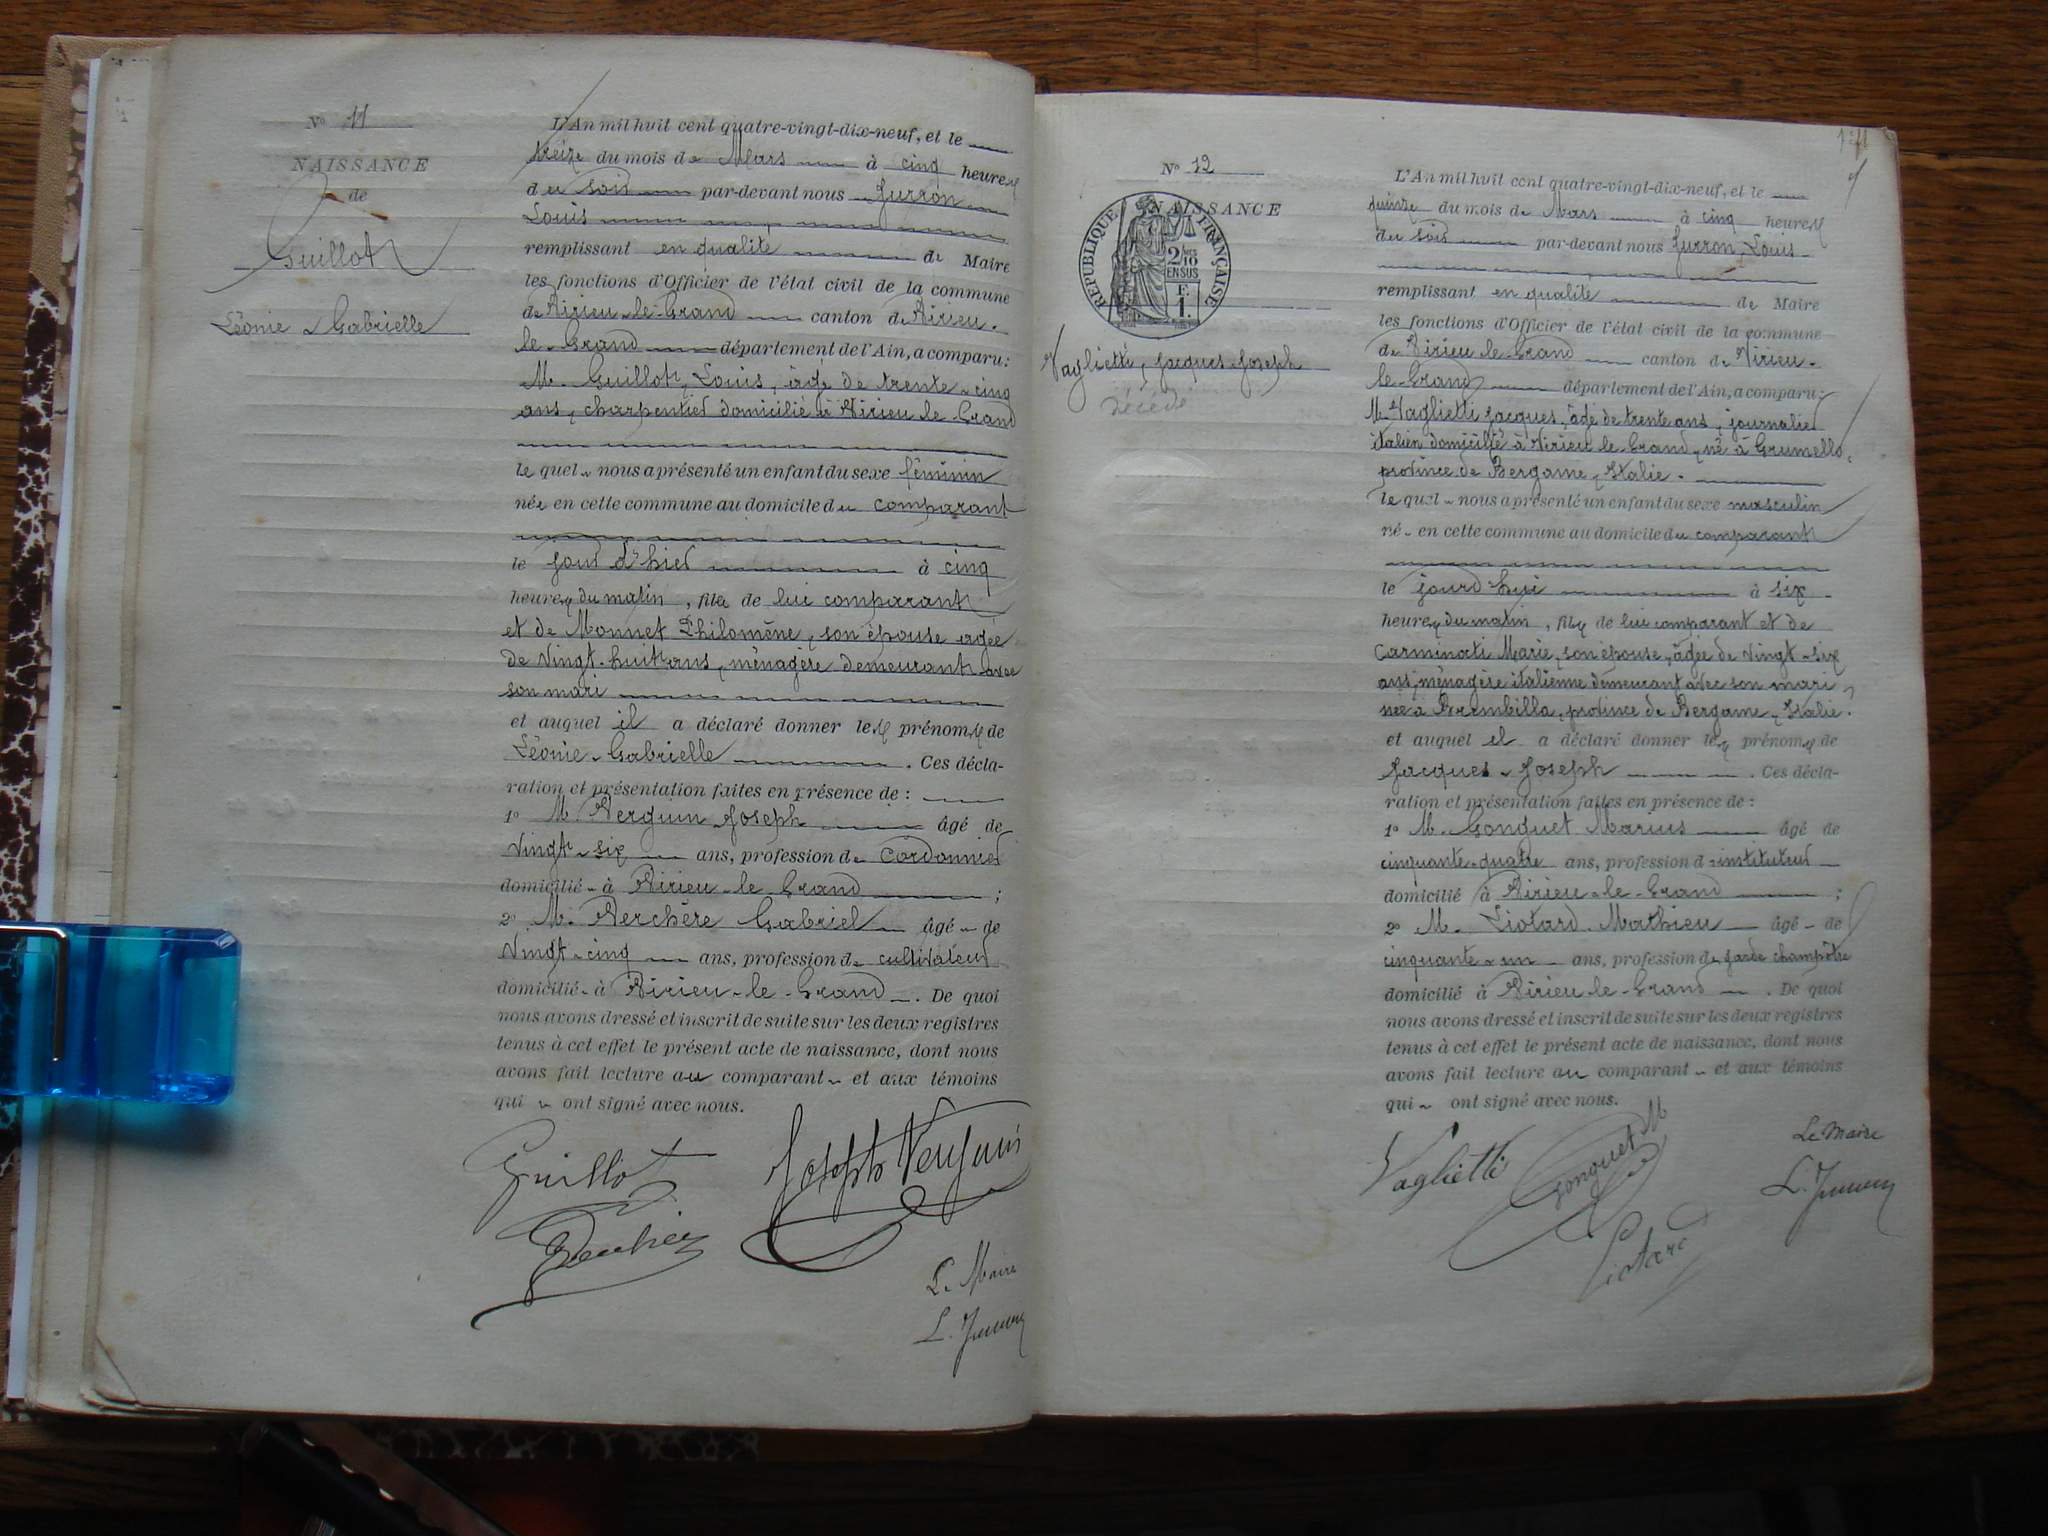 Nº 11
NAISSANCE
de
Guillot
Léonie-Gabrielle
L'An mil huit cent quatre-vingt-dix-neuf, et le
treize du mois de Mars à cinq heures
du soir par-devant nous Jurron
Louis
remplissant en qualité de Maire
les fonctions d'Officier de l'état civil de la commune
de Virieu-le-Grand canton de Virieu-
le-Grand département de l'Ain, a comparu:
M. Guillot, Louis, âgé de trente-cinq
ans, charpentier domicilié à Virieu-le-Grand
lequel nous a présenté un enfant du sexe féminin
née en cette commune au domicile du comparant
le jour d'hier à cinq
heures du matin, fille de lui comparant
et de Monnet Philomène, son épouse agée
de vingt-huit ans, ménagère demeurant avec
son mari
et auquel il a déclaré donner les prénoms de
Léonie-Gabrielle. Ces décla-
ration et présentation faites en présence de:
1º M. Verguin Joseph âgé de
vingt-six ans, profession de cordonnier
domicilié à Virieu-le-Grand;
2º M. Berchère Gabriel âgé de
vingt-cinq ans, profession de cultivateur
domicilié à Virieu-le-Grand. De quoi
nous avons dressé et inscrit de suite sur les deux registres
tenus à cet effet le présent acte de naissance, dont nous
avons fait lecture au comparant et aux témoins
qui ont signé avec nous.
Guillot Joseph Verguin
Le Maire
L. Jurron
Nº 12
NAISSANCE
RÉPUBLIQUE FRANÇAISE
2/10
EN SUS
F.
1.
Vaglietti, Jacques-Joseph
décédé
L'An mil huit cent quatre-vingt-dix-neuf, et le
quinze du mois de Mars à cinq heures
du soir par-devant nous Jurron, Louis
remplissant en qualité de Maire
les fonctions d'Officier de l'état civil de la commune
de Virieu-le-Grand canton de Virieu-
le-Grand département de l'Ain, a comparu:
M. Vaglietti Jacques, âgé de trente ans, journalier
italien domicilié à Virieu-le-Grand, né à Grumello,
province de Bergame, Italie.
lequel nous a présenté un enfant du sexe masculin
né en cette commune au domicile du comparant
le jourd'hui à six
heures du matin, fils de lui comparant et de
Carminati Marie, son épouse, âgée de vingt-six
ans, ménagère italienne demeurant avec son mari
née à Brembilla, province de Bergame, Italie.
et auquel il a déclaré donner les prénoms de
Jacques-Joseph. Ces décla-
ration et présentation faites en présence de:
1º M. Gonguet Marius âgé de
cinquante-quatre ans, profession d'instituteur
domicilié à Virieu-le-Grand;
2º M. Liotard Mathieu âgé de
cinquante-un ans, profession de garde champêtre
domicilié à Virieu-le-Grand. De quoi
nous avons dressé et inscrit de suite sur les deux registres
tenus à cet effet le présent acte de naissance, dont nous
avons fait lecture au comparant et aux témoins
qui ont signé avec nous.
Vaglietti Gonguet M Le Maire
Liotard L. Jurron